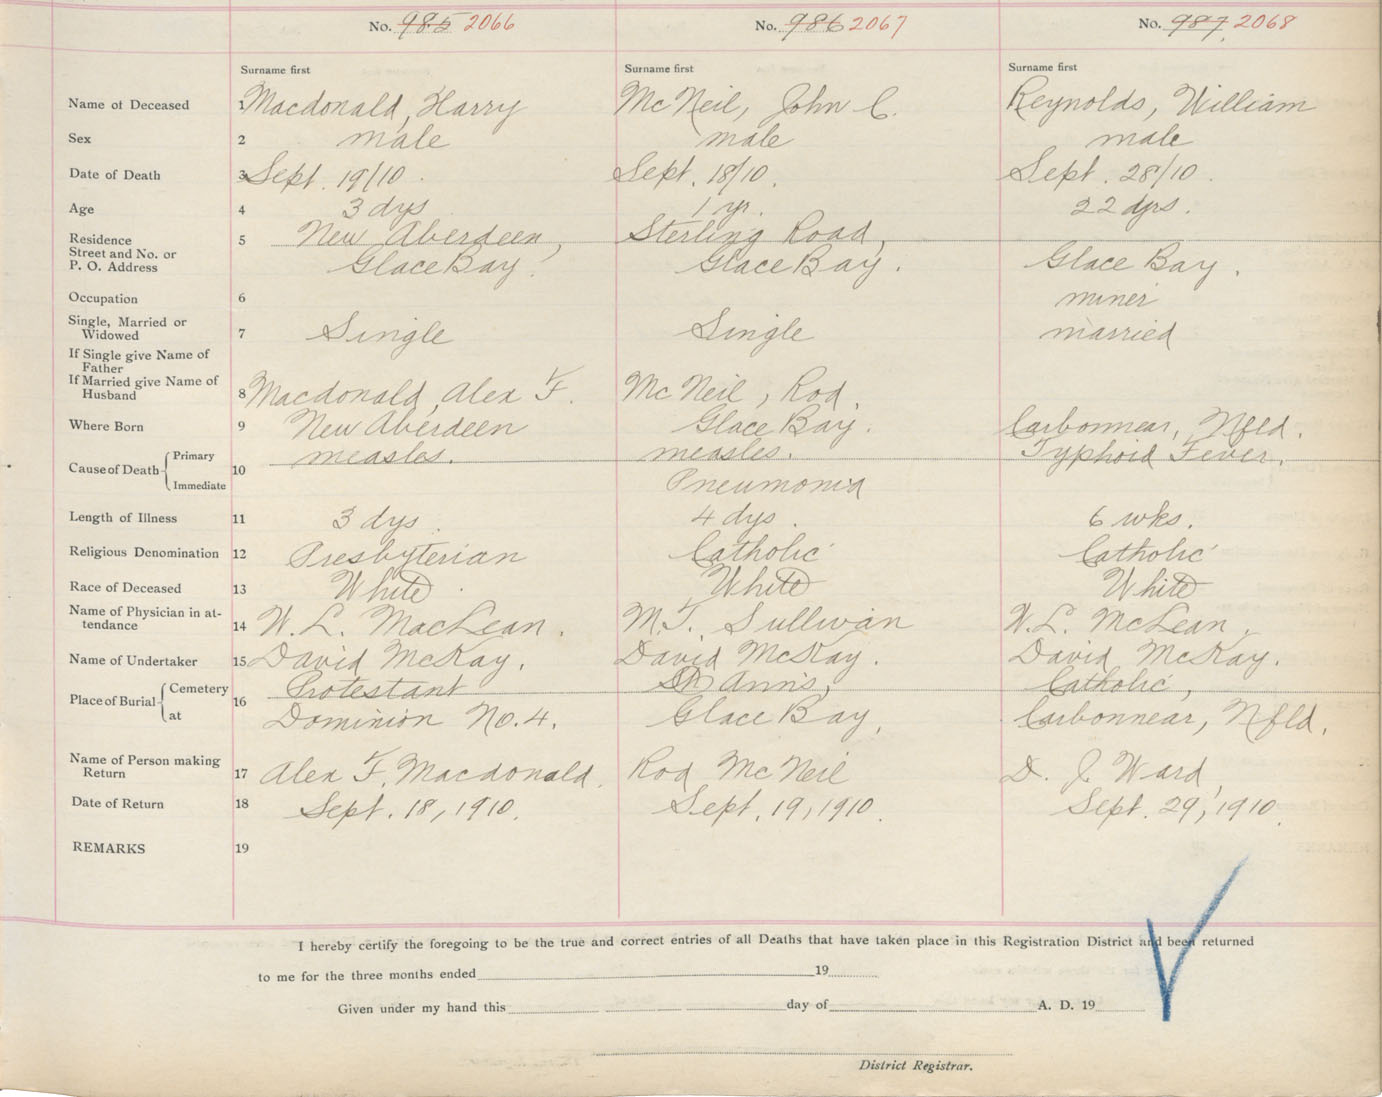 No. 985 2066 No. 986 2067 No. 987 2068
Surname first Surname first Surname first
Name of Deceased 1 Macdonald, Harry McNeil, John C. Reynolds, William
Sex 2 male male male
Date of Death 3 Sept. 19/10. Sept. 18/10. Sept. 28/10.
Age 4 3 dys 1 yr. 22 dyrs.
Residence 5 New Aberdeen, Sterling Road,
Street and No. or
P. O. Address Glace Bay. Glace Bay. Glace Bay.
Occupation 6 miner
Single, Married or
Widowed 7 Single Single married
If Single give Name of
Father
If Married give Name of
Husband 8 Macdonald, Alex F. McNeil, Rod.
Where Born 9 New Aberdeen Glace Bay. Carbonnear, Nfld.
Cause of Death Primary 10 measles. measles. Typhoid Fever.
Immediate Pneumonia
Length of Illness 11 3 dys. 4 dys. 6 wks.
Religious Denomination 12 Presbyterian Catholic Catholic
Race of Deceased 13 White White White
Name of Physician in at-
tendance 14 W. L. MacLean. M. T. Sullivan W. L. McLean.
Name of Undertaker 15 David McKay. David McKay. David McKay.
Place of Burial Cemetery 16 Protestant St Ann's, Catholic,
at Dominion No. 4. Glace Bay, Carbonnear, Nfld.
Name of Person making
Return 17 Alex F. Macdonald. Rod McNeil D. J. Ward,
Date of Return 18 Sept. 18, 1910. Sept. 19, 1910. Sept. 29, 1910.
REMARKS 19
I hereby certify the foregoing to be the true and correct entries of all Deaths that have taken place in this Registration District and been returned
to me for the three months ended 19
Given under my hand this day of A. D. 19
District Registrar.